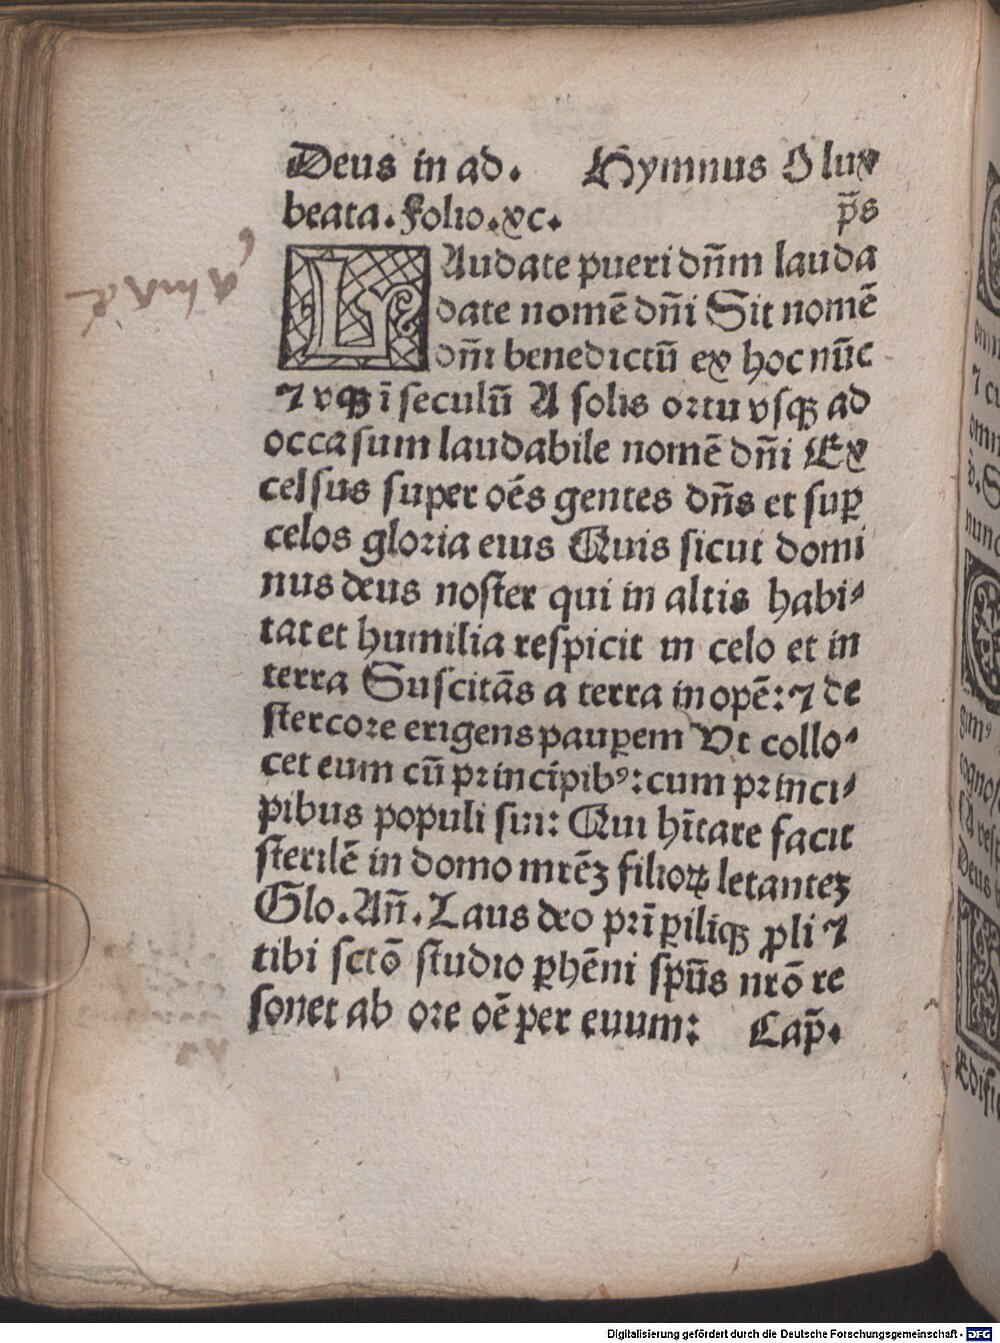 Deus in ad. Hymnus O lux
beata. Folio. xc. p̄s
LAudate pueri dn̄m lauda
date nomē dn̄i Sit nomē
dn̄i benedictū ex hoc nūc
⁊ vsqꝫ ī seculū A solis ortu vsqꝫ ad
occasum laudabile nomē dn̄i Ex
celsus super oēs gentes dn̄s et suꝑ
celos gloria eius Quis sicut domi
nus deus noster qui in altis habi⸗
tat et humilia respicit in celo et in
terra Suscitās a terra inopē: ⁊ de
stercore erigens pauꝑem Ut collo⸗
cet eum cū principibꝰ: cum princi⸗
pibus populi sui: Qui hītare facit
sterilē in domo mrēꝫ filioꝝ letanteꝫ
Glo. An̄. Laus deo prī ꝑiliqꝫ ꝓli ⁊
tibi sctō studio ꝑhēni spūs nrō re
sonet ab ore oē per euum: Cap̄.
Digitalisierung gefördert durch die Deutsche Forschungsgemeinschaft - DFG